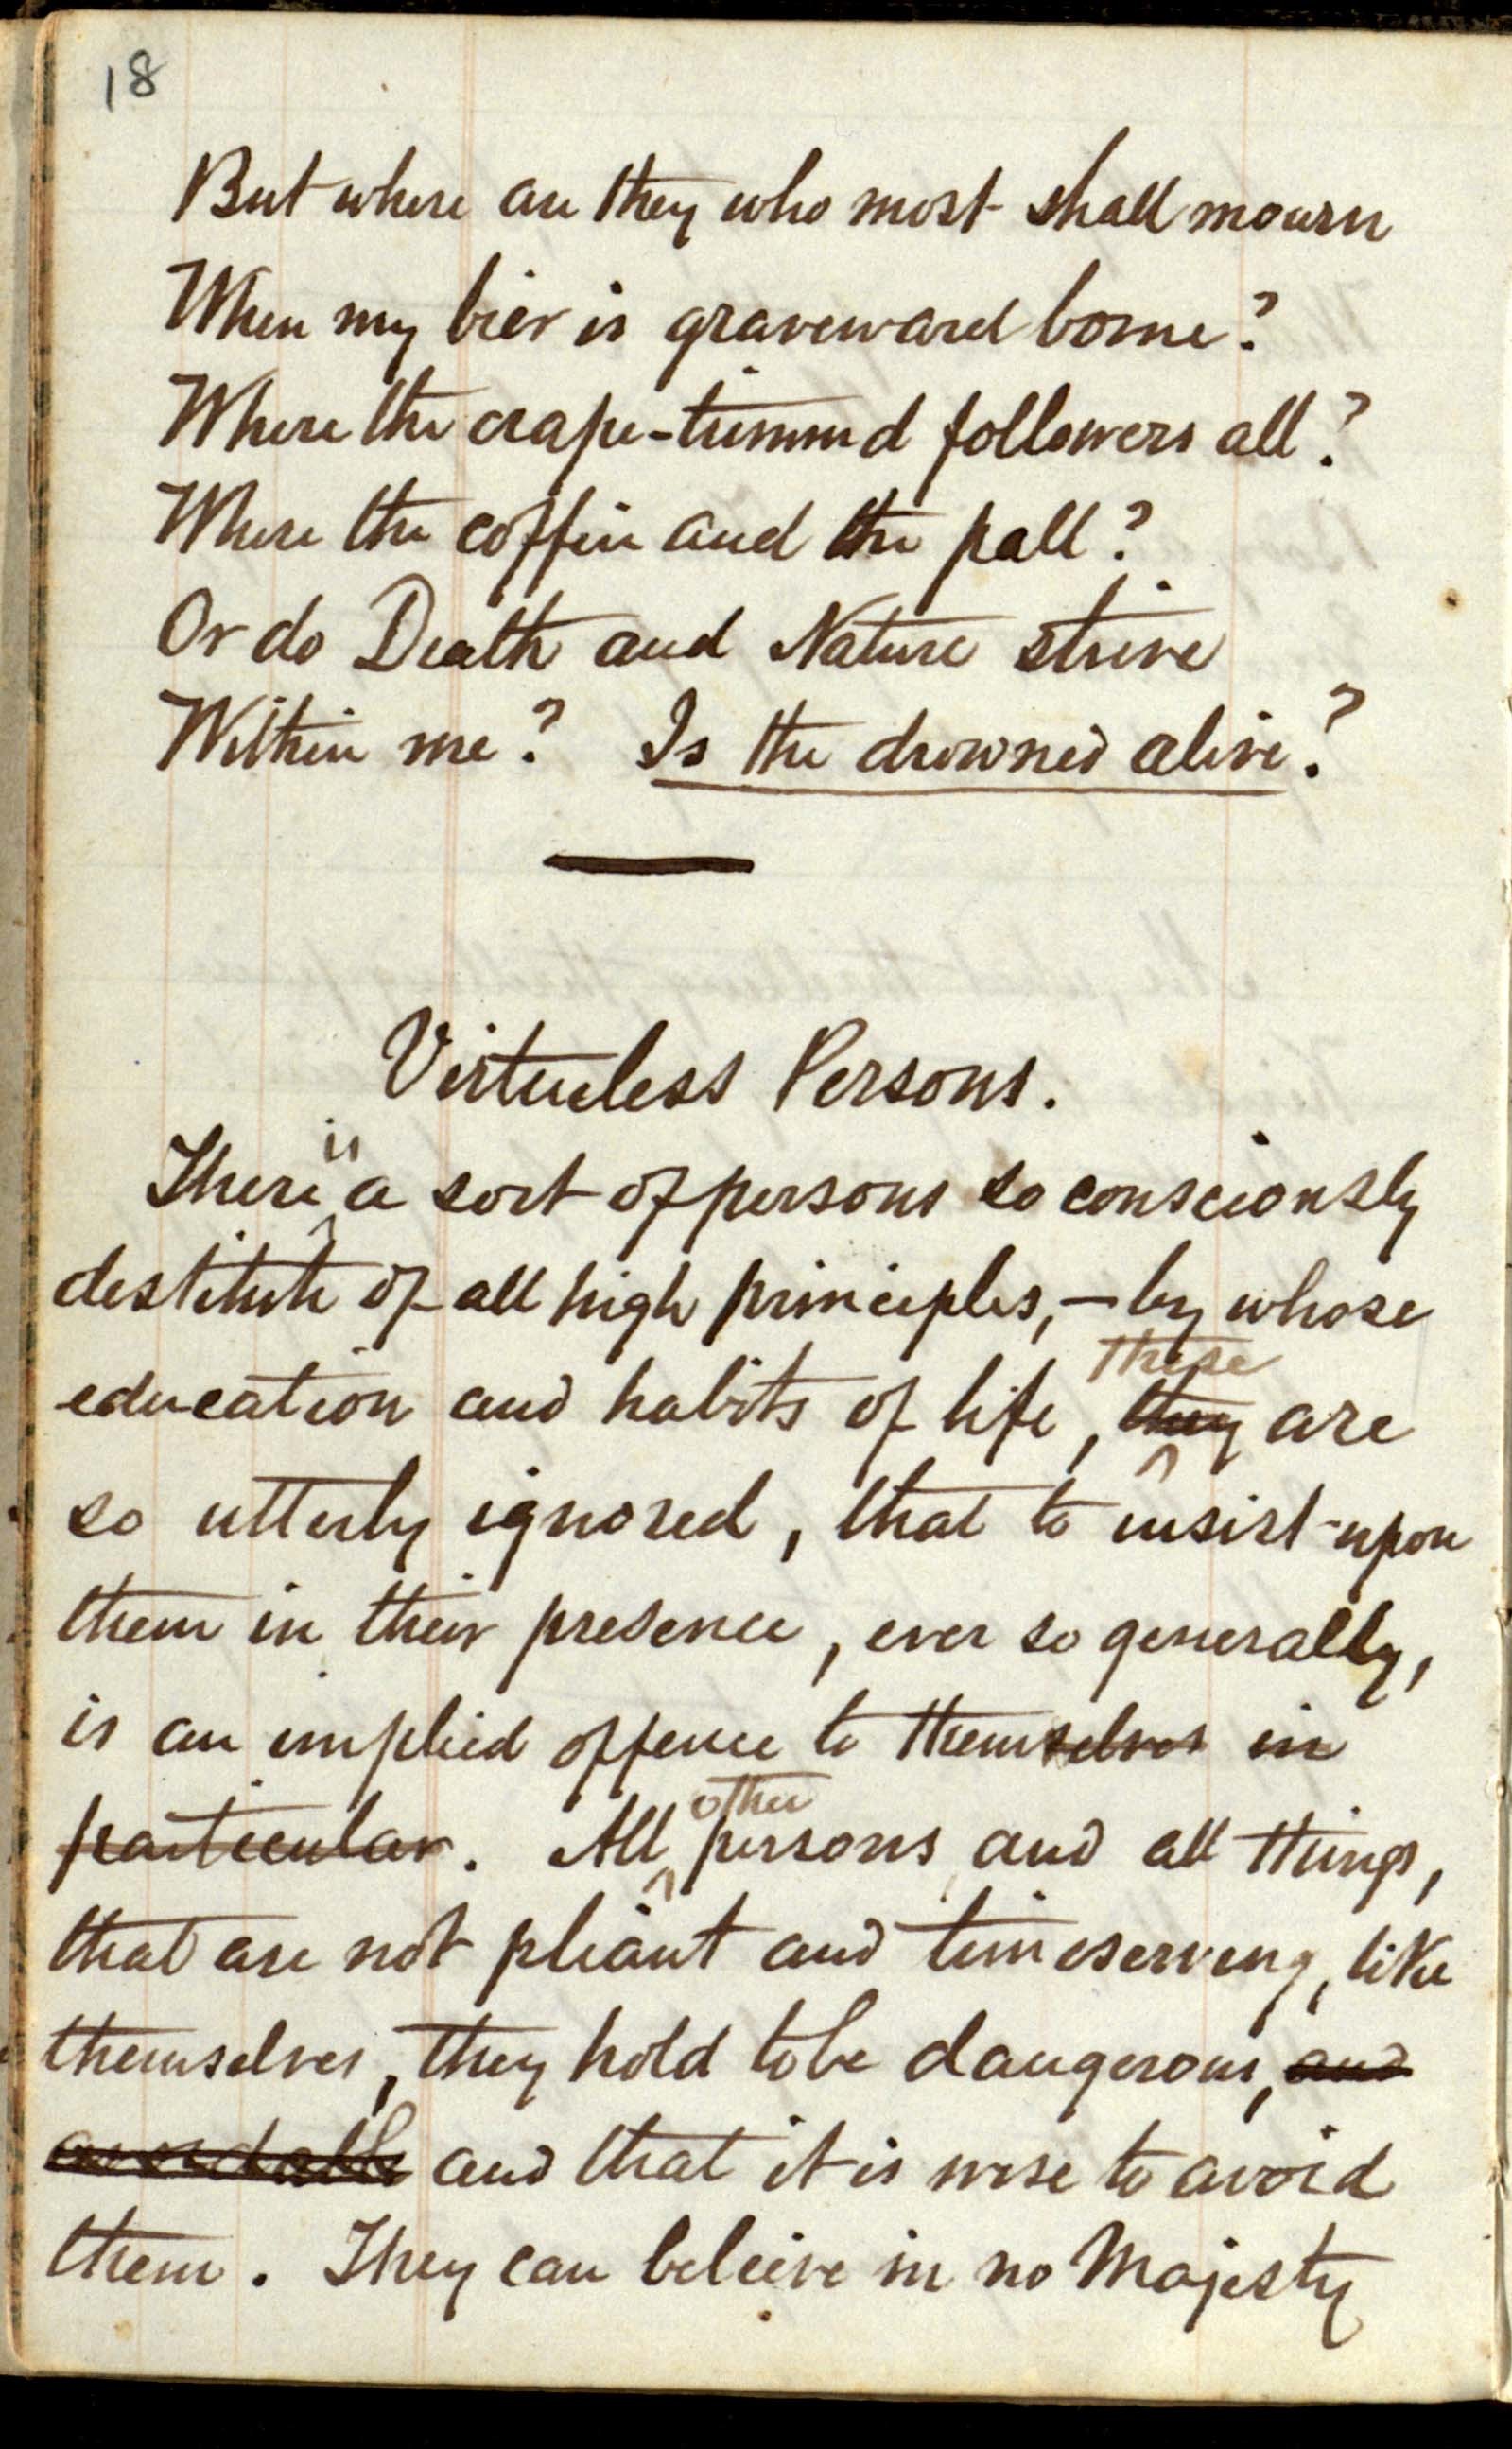 18
But where are they who most shall mourn
When my bier is graveward borne?
Where the crape-trimmed followers all?
Where the coffin and the pall?
Or do Death and Nature strive
Within me? Is the drowned alive?
Virtueless Persons.
There is a sort of persons so consciously
destitute of all high principles, — by whose
education and habits of life, they these are
so utterly ignored, that to insist upon
them in their presence, ever so generally,
is an implied offence to themselves in
particular. All other persons and all things,
that are not pliant and timeserving, like
themselves, they hold to be dangerous, and
avoidable and that it is wise to avoid
them. They can beleive in no Majesty